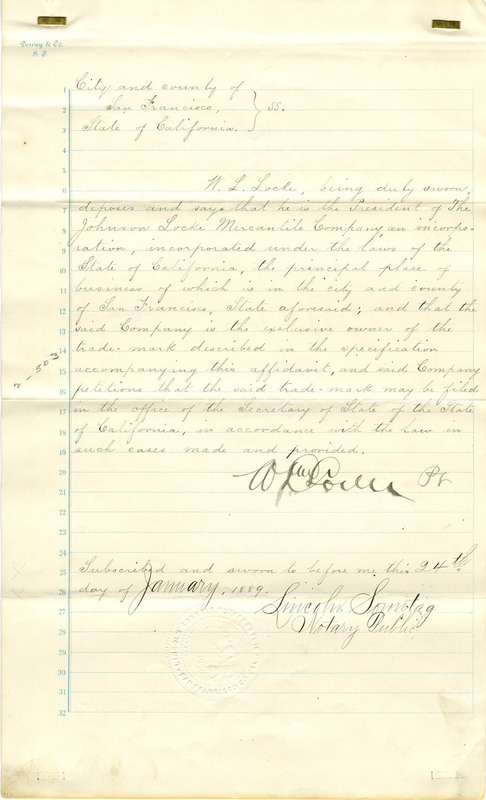 Dewey & Co.
S. F.
1 City and county of
2 San Francisco, } ss.
3 State of California.
4
5
6 W. L. Locke, being duly sworn,
7 deposes and says that he is the President of The
8 Johnson Locke Mercantile Company, an incorpo-
9 ration, incorporated under the laws of the
10 State of California, the principal place of
11 business of which is in the city and county
12 of San Francisco, State aforesaid; and that the
13 said Company is the exclusive owner of the
14 trade-mark described in the specification
15 accompanying this affidavit, and said Company
16 petitions that the said trade-mark may be filed
17 in the office of the Secretary of State of the State
18 of California, in accordance with the law in
19 such cases made and provided.
20
21 W L Locke Pt
22
23
24
25 Subscribed and sworn to before me this 24th
26 day of January, 1889.
27 Lincoln Sonntag
28 Notary Public
29
30
31
32